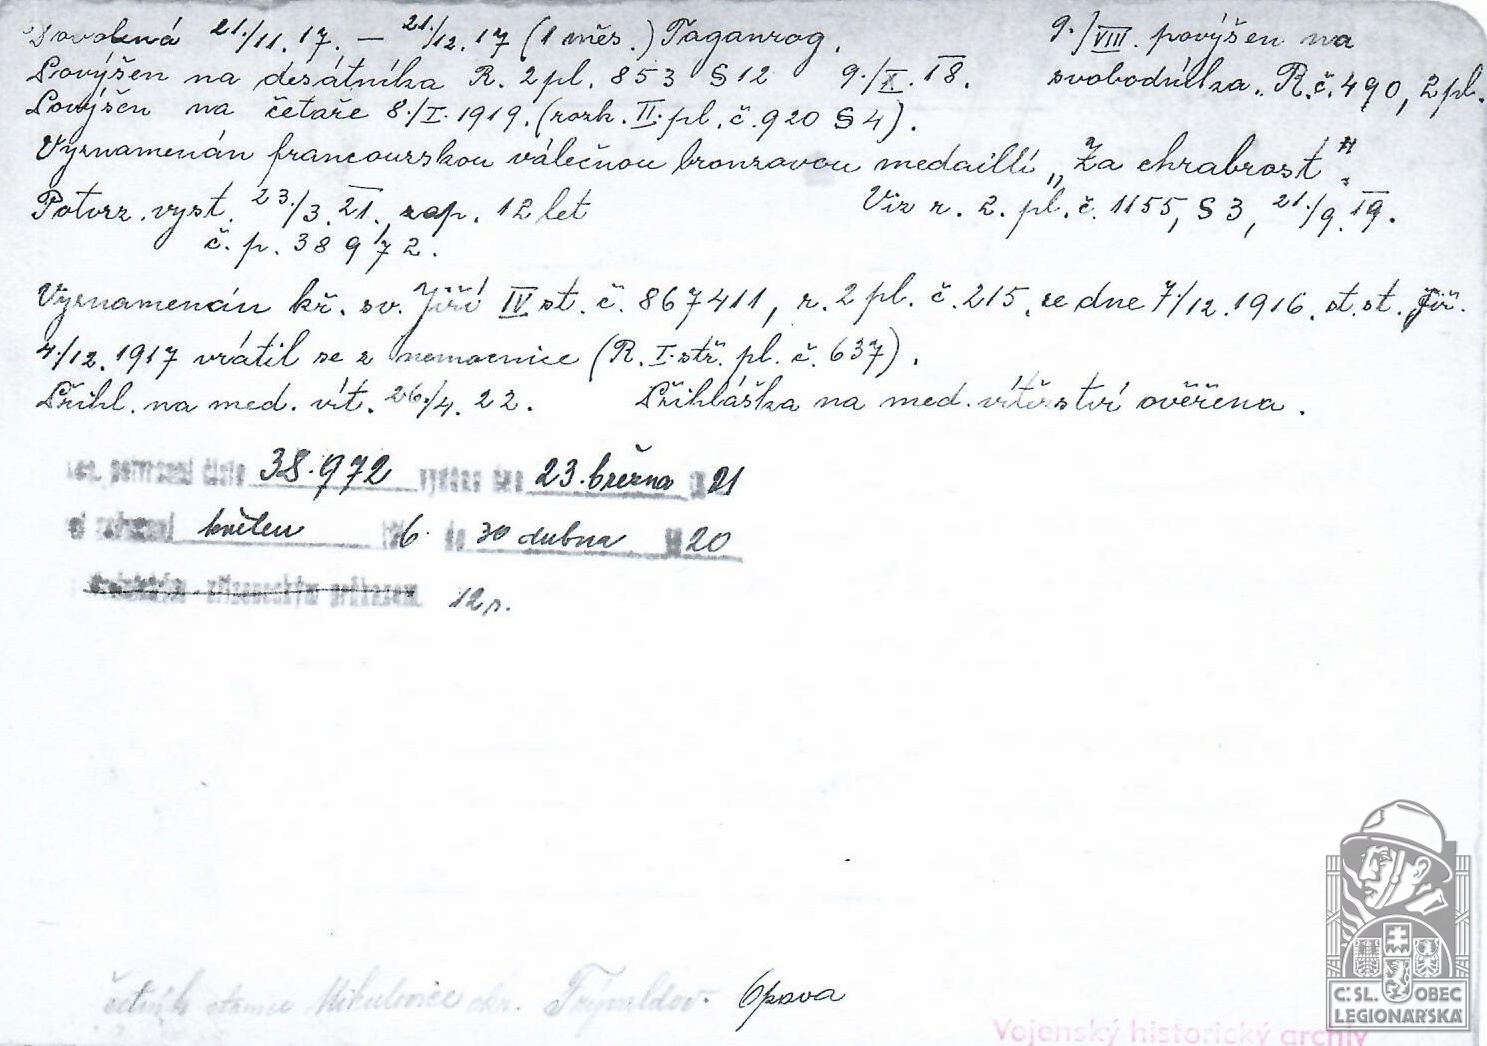 Dovolená 21./11.17. – 21./12.17 (1 měs.) Taganrog. 9./VIII. povýšen na
Povýšen na desátníka R. 2 pl. 853 § 12 9./X. 18. svobodníka. R.č. 490, 2 pl.
Povýšen na četaře 8./I. 1919. (rozk. II. pl. č. 920 § 4).
Vyznamenán francouzskou válečnou bronzovou medaillí „Za chrabrost".
Potvrz. vyst. 23./3. 21., zap. 12 let Viz r. 2. pl. č. 1155, § 3, 21./9. 19.
č. p. 38972.
Vyznamenán kř. sv. Jiří IV st. č. 867411, r. 2 pl. č. 215, ze dne 7./12. 1916. st. st. Jiř.
4./12. 1917 vrátil se z nemocnice (R. I. stř. pl. č. 637).
Přihl. na med. vít. 26./4. 22. Přihláška na med. vítězství ověřena.
potvrzení číslo 38.972 vydáno dne 23. března 21
květen 6. do 30 dubna 20
zřízeneckým průkazem. 12 r.
četník stanice Mikulovice okr. Frývaldov. Opava
Č.SL. OBEC
LEGIONÁŘSKÁ
Vojenský historický archiv